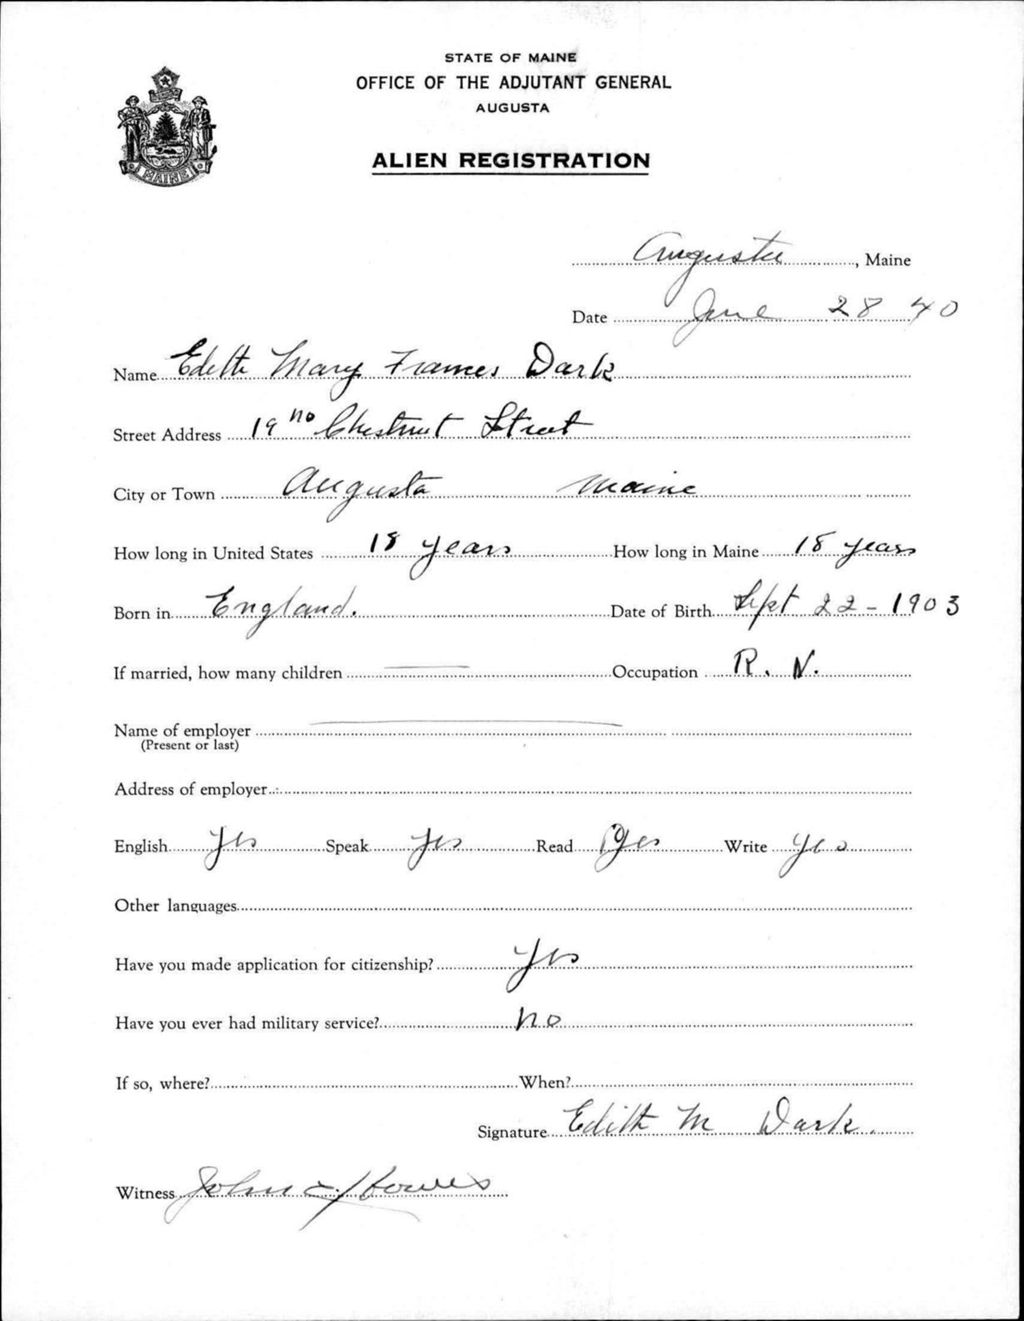 STATE OF MAINE
OFFICE OF THE ADJUTANT GENERAL
AUGUSTA
ALIEN REGISTRATION
MAINE
Augusta, Maine
Date June 28 40
Name Edith Mary Frances Dark
Street Address 19 no Chestnut Street
City or Town Augusta Maine
How long in United States 18 years How long in Maine 18 years
Born in England. Date of Birth Sept 22 - 1903
If married, how many children Occupation R. N.
Name of employer
(Present or last)
Address of employer
English Yes Speak Yes Read Yes Write Yes
Other languages
Have you made application for citizenship? Yes
Have you ever had military service? no
If so, where? When?
Signature Edith M Dark.
Witness John Howes